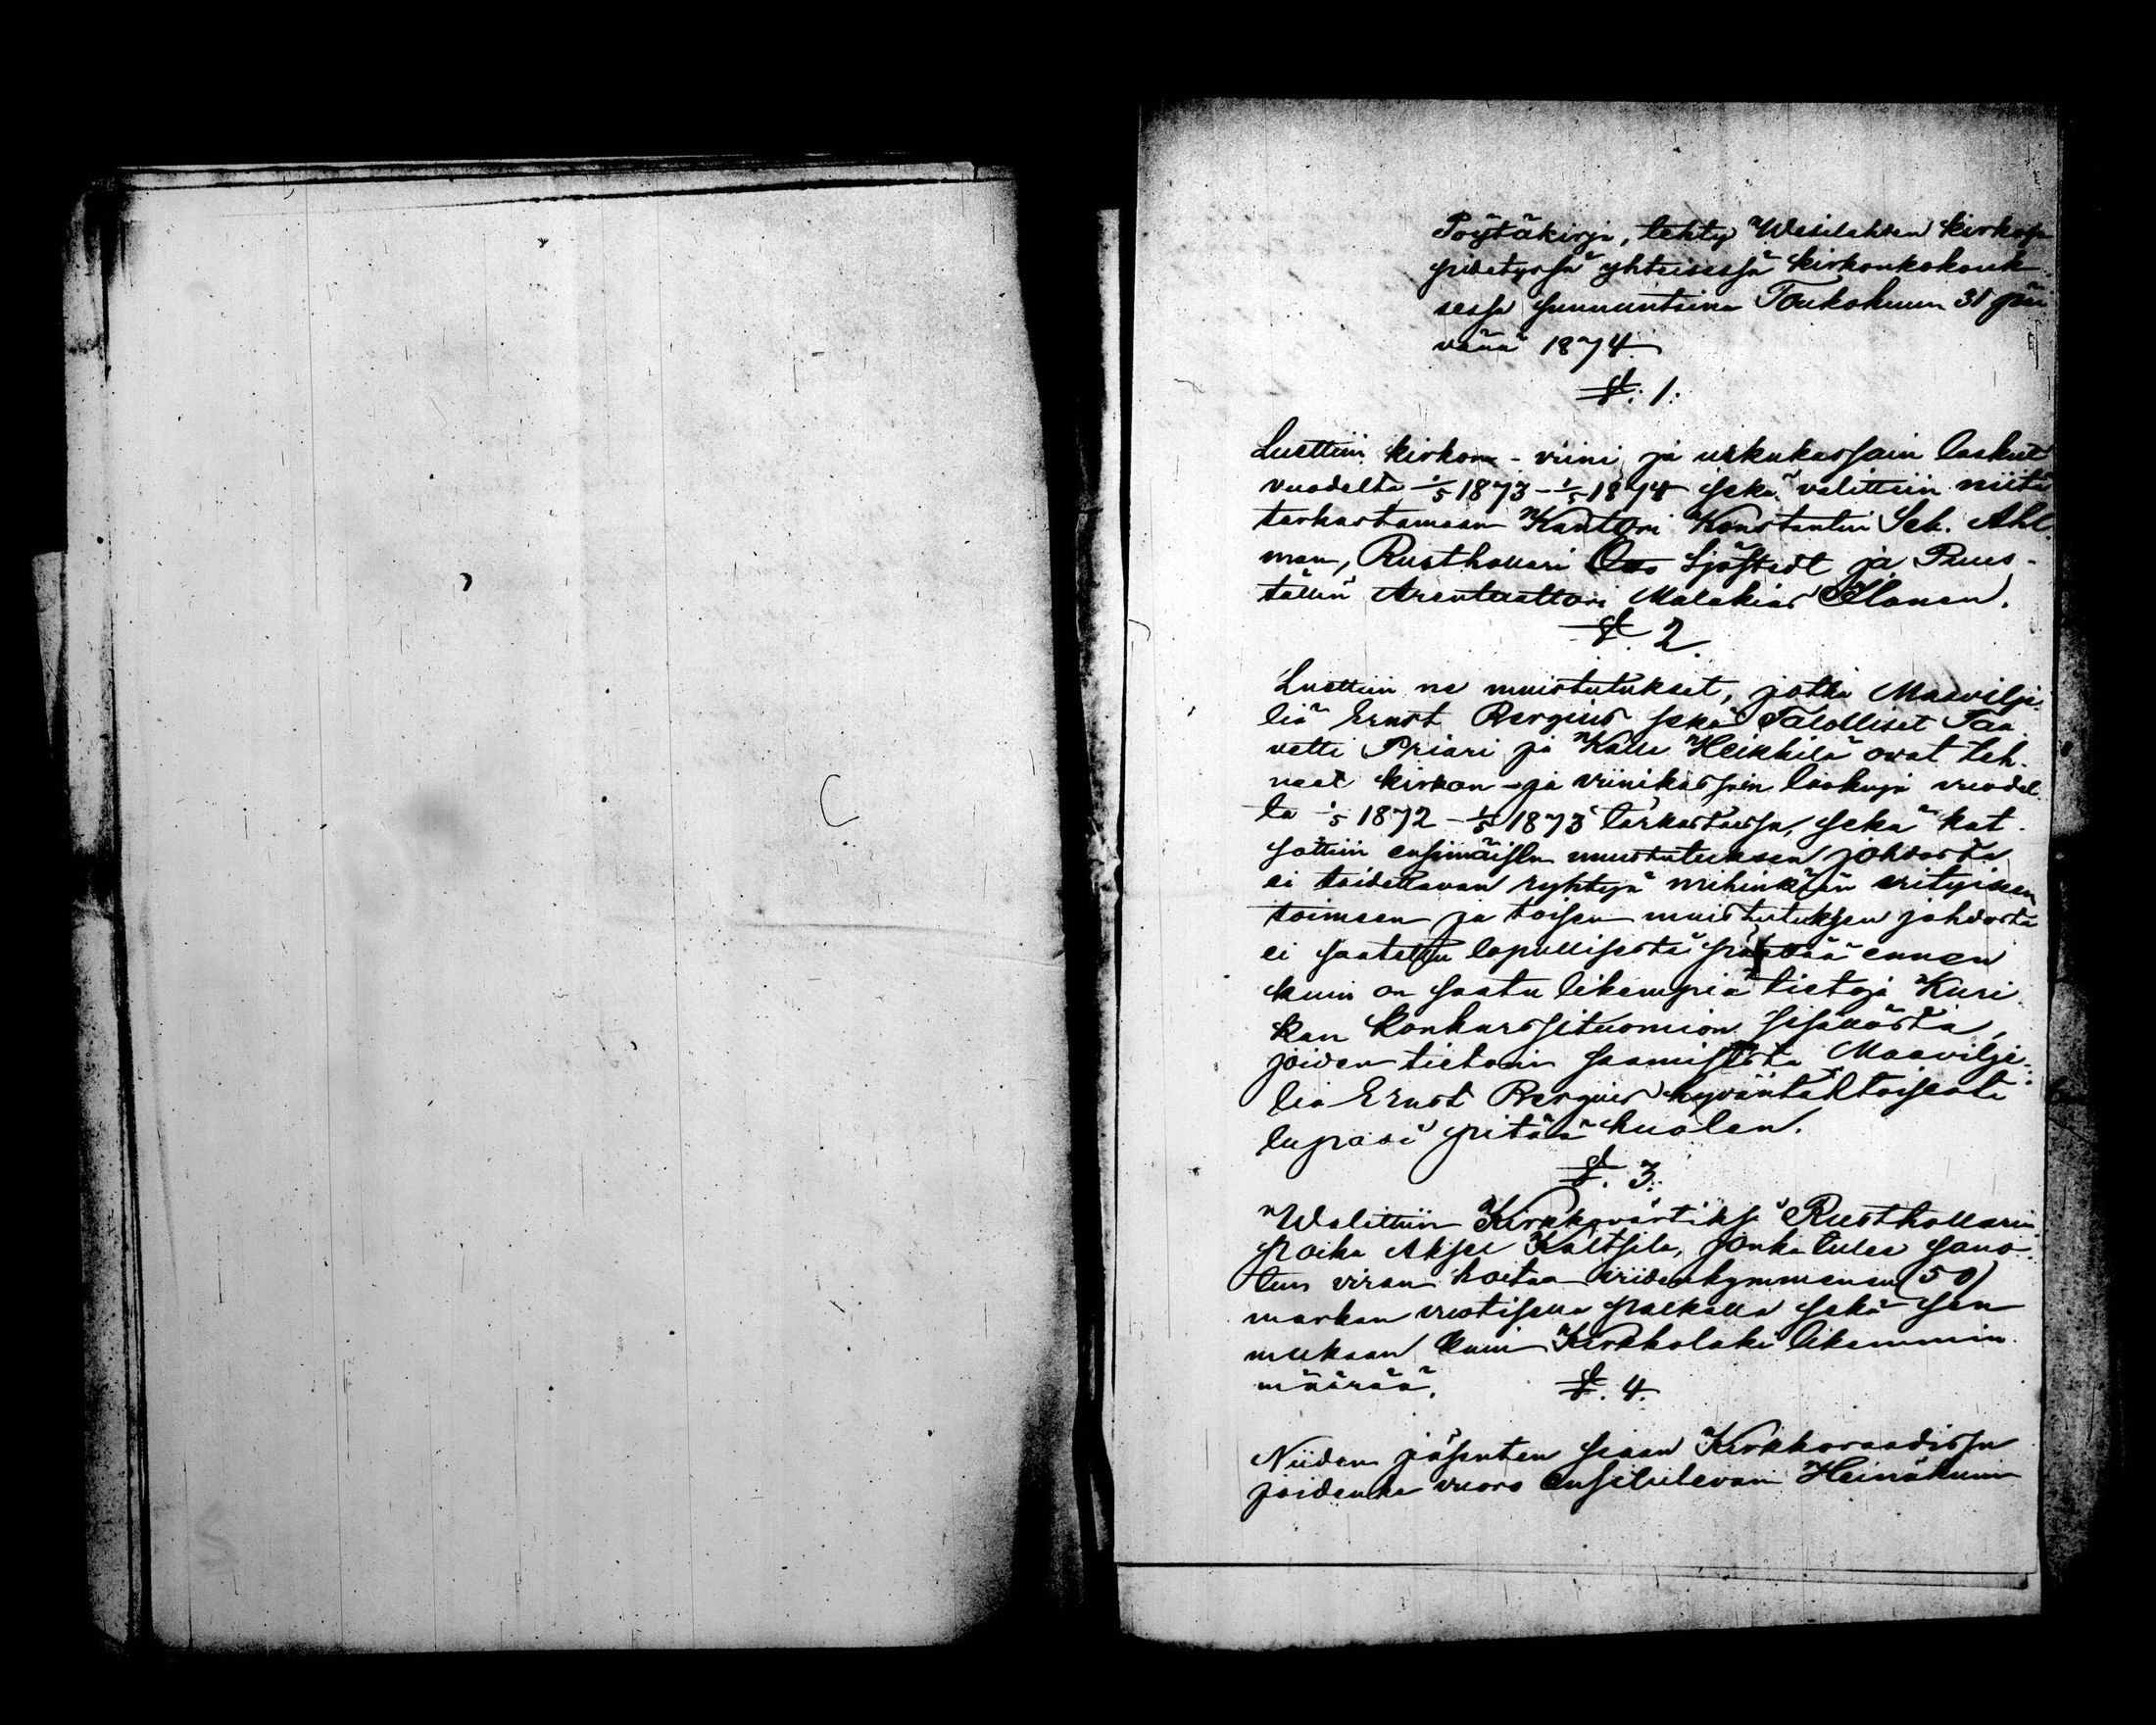 Pöytäkirja, tehty Wesilahden kirkossa
pidetyssä yhteisessä kirkonkokouk
sessa sunnuntaina Toukokuun 31 päi
vänä 1874.
§. 1.
Luettiin kirkon- viini ja urkukassain laskut
vuodelta 1/5 1873 - 1/5 1874 sekä valittiin niitä
tarkastamaan Kanttori Konstantin Seb. Ahl
man, Rusthollari Sjöstedt ja Puus-
tällin Arentaattori Malakias Elonen.
§. 2.
Luettiin ne muistutukset, jotka Maavilje
liä Ernst Bergius sekä Talolliset Taa
vetti Priari ja Kalle Heikkilä ovat teh-
neet kirkon- ja viinikassain laskuja vuodel
ta 1/5 1872 - 1/5 1873 tarkastaissa, sekä kat-
sottiin ensimäisen muistutuksen johdosta
ei taidettavan ryhtyä mihinkään erityiseen
toimeen ja toisen muistutuksen johdosta
ei saatettu lopullisesta päättää ennen
kuin on saatu likempiä tietoja Kuri
kan konkurssituomion sisällöstä,
joiden tietoin saamisesta Maavilje-
liä Ernst Bergius hyväntahtoisesti
lupasi pitää huolen.
§. 3.
Walittiin Kirkkovärtiksi Rusthollarin
poika Aksel Kaltsila, jonka tulee sano
tun viran hoitaa viidenkymmenen (50)
markan vuotisella palkalla sekä sen
mukaan kuin Kirkkolaki likemmin
määrää.
§. 4.
Niiden jäsenten siaan Kirkkoraadissa
joidenka vuoro ensitulevan Heinäkuun